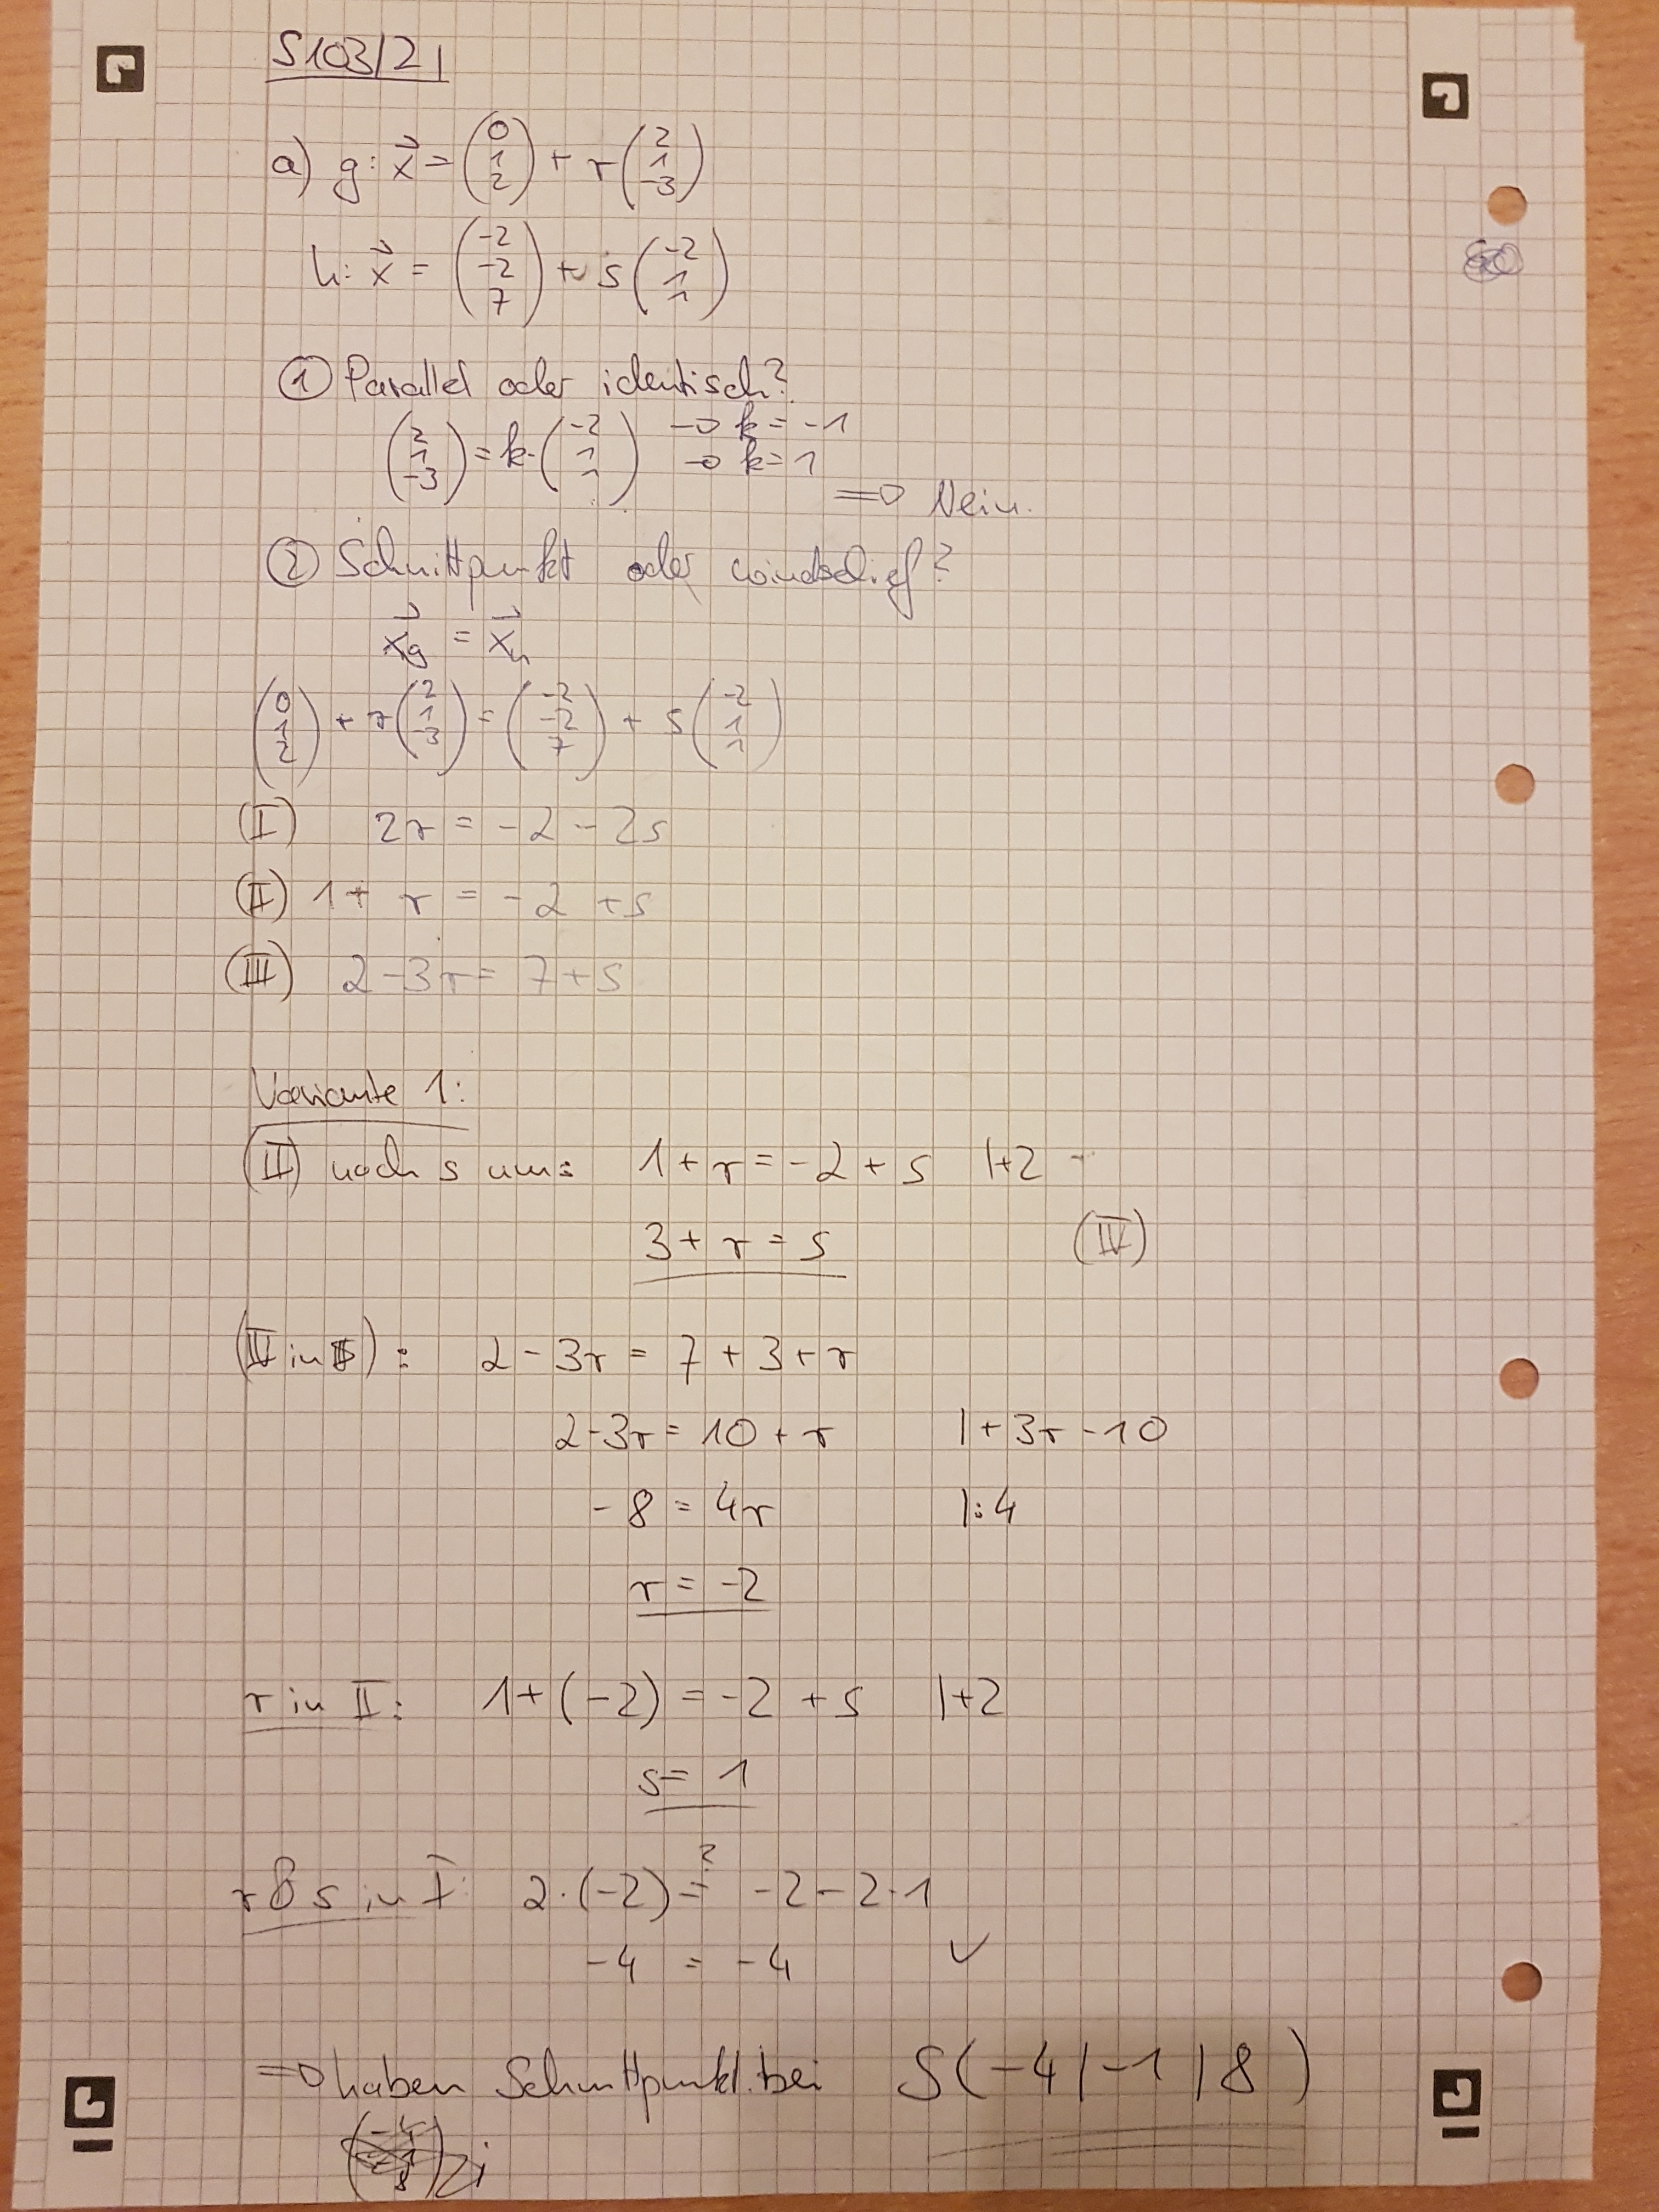 S103/2
a) g: x⃗ = (0 1 2) + r (2 1 -3)
h: x⃗ = (-2 -2 7) + s (-2 1 1)
① Parallel oder identisch?
(2 1 -3) = k· (-2 1 1) → k = -1
→ k = 1
⇒ Nein.
② Schnittpunkt oder windschief?
x⃗g = x⃗h
(0 1 2) + r (2 1 -3) = (-2 -2 7) + s (-2 1 1)
(I) 2r = -2 - 2s
(II) 1 + r = -2 + s
(III) 2 - 3r = 7 + s
Variante 1:
(II) nach s um: 1 + r = -2 + s |+2
3 + r = s (IV)
(IV in III): 2 - 3r = 7 + 3 + r
2 - 3r = 10 + r |+3r - 10
-8 = 4r |:4
r = -2
r in II: 1 + (-2) = -2 + s |+2
s = 1
r & s in I: 2·(-2) ≟ -2 - 2·1
-4 = -4 ✓
⇒ haben Schnittpunkt bei S(-4|-1|8)